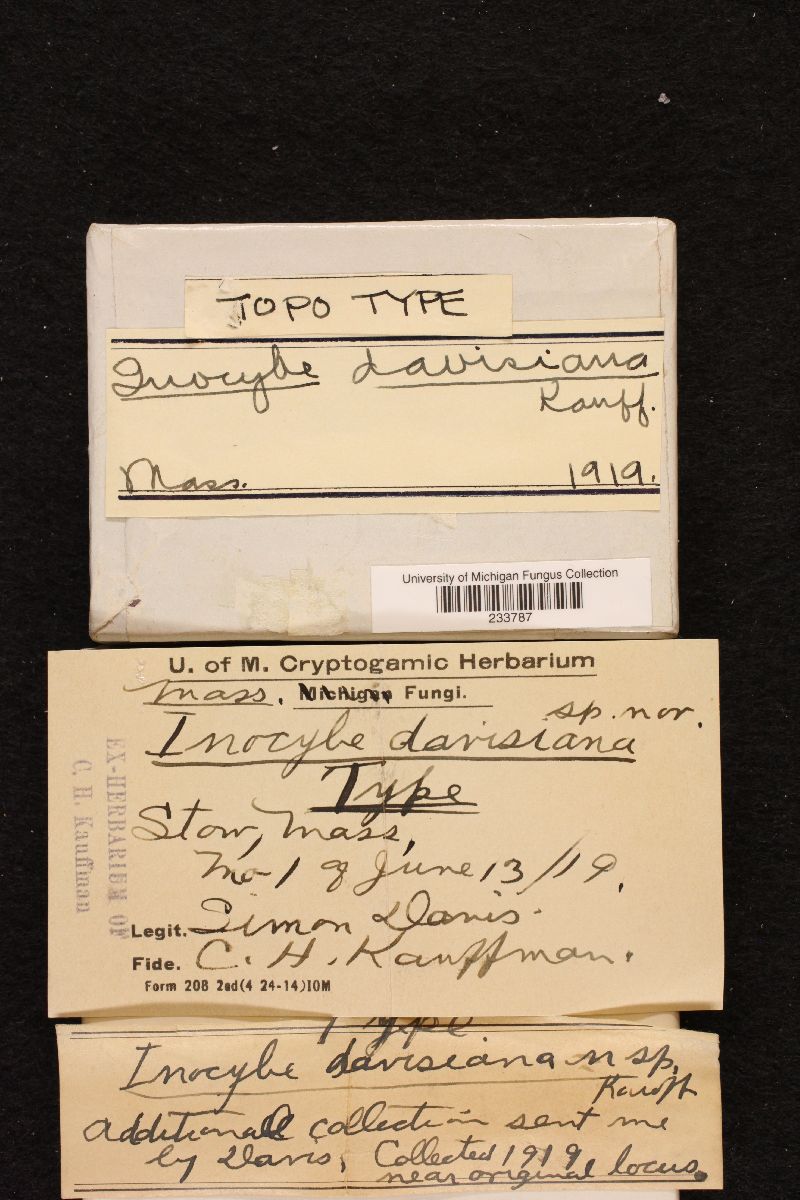 TOPO TYPE
Inocybe davisiana
Kauff.
Mass. 1919.
University of Michigan Fungus Collection
233787
U. of M. Cryptogamic Herbarium
Mass. Michigan Fungi.
Inocybe davisiana sp. nov.
Type
Stow, Mass,
No 1 of June 13/19.
Legit. Simon Davis.
Fide. C. H. Kauffman.
Form 208 2ad(4 24-14)10M
EX-HERBARIUM OF
C. H. Kauffman
Type
Inocybe davisiana n sp.
Kauff
Additional collection sent me
by Davis, Collected 1919
near original locus.